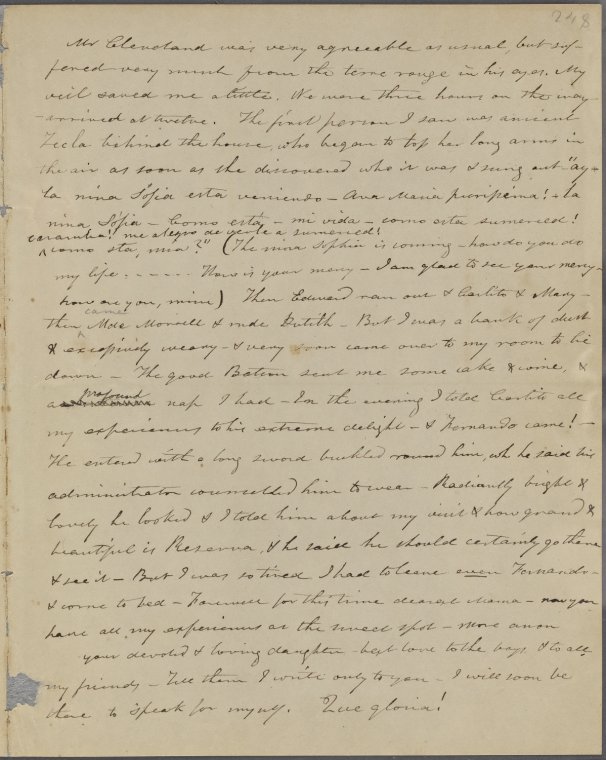 248
Mr Cleveland was very agreeable as usual, but suf-
fered very much from the terre rouge in his eyes. My
veil saved me a little. We were three hours on the way
- arrived at twelve. The first person I saw was ancient
Tecla behind the house, who began to toss her long arms in
the air as soon as she discovered who it was & sung out "ay-
la nina Sofia esta veniendo - Ava Maria purissima! - la
nina Sofia - Como está - mi vida - como esta sumerced!
caramba! me alegro de verte a sumerced!
^ como sta, mia?" (The nina Sophia is coming - how do you do
my life . . - . . . . How is your mercy - I am glad to see your mercy -
how are you, mine) Then Edward ran out & Carlito & Mary -
then ^ came Mde Morrell & mde Butith - But I was a bank of dust
& weary - & very soon came over to my room to lie
down - The good sent me some cake & wine, &
a profound nap I had - In the evening I told Carlito all
my experiences to his extreme delight - & Fernando came! -
He entered with a long sword buckled round him, wh he said his
administrator counselled him to wear - Radiantly bright &
lovely he looked & I told him about my visit & how grand &
beautiful is Reserva, & he said he should certainly go there
& see it - But I was so tired I had to leave even Fernando -
& come to bed - Farewell for this time dearest Mama - now you
have all my experiences at the sweet spot - more anon
your devoted & loving daughter - best love to the boys & to all
my friends - Tell them I write only to you - I will soon be
there to speak for myself. Que gloria!